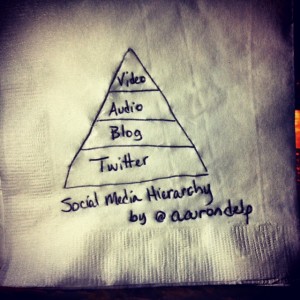 Video
Audio
Blog
Twitter
Social Media Hierarchy
by @aarondelp